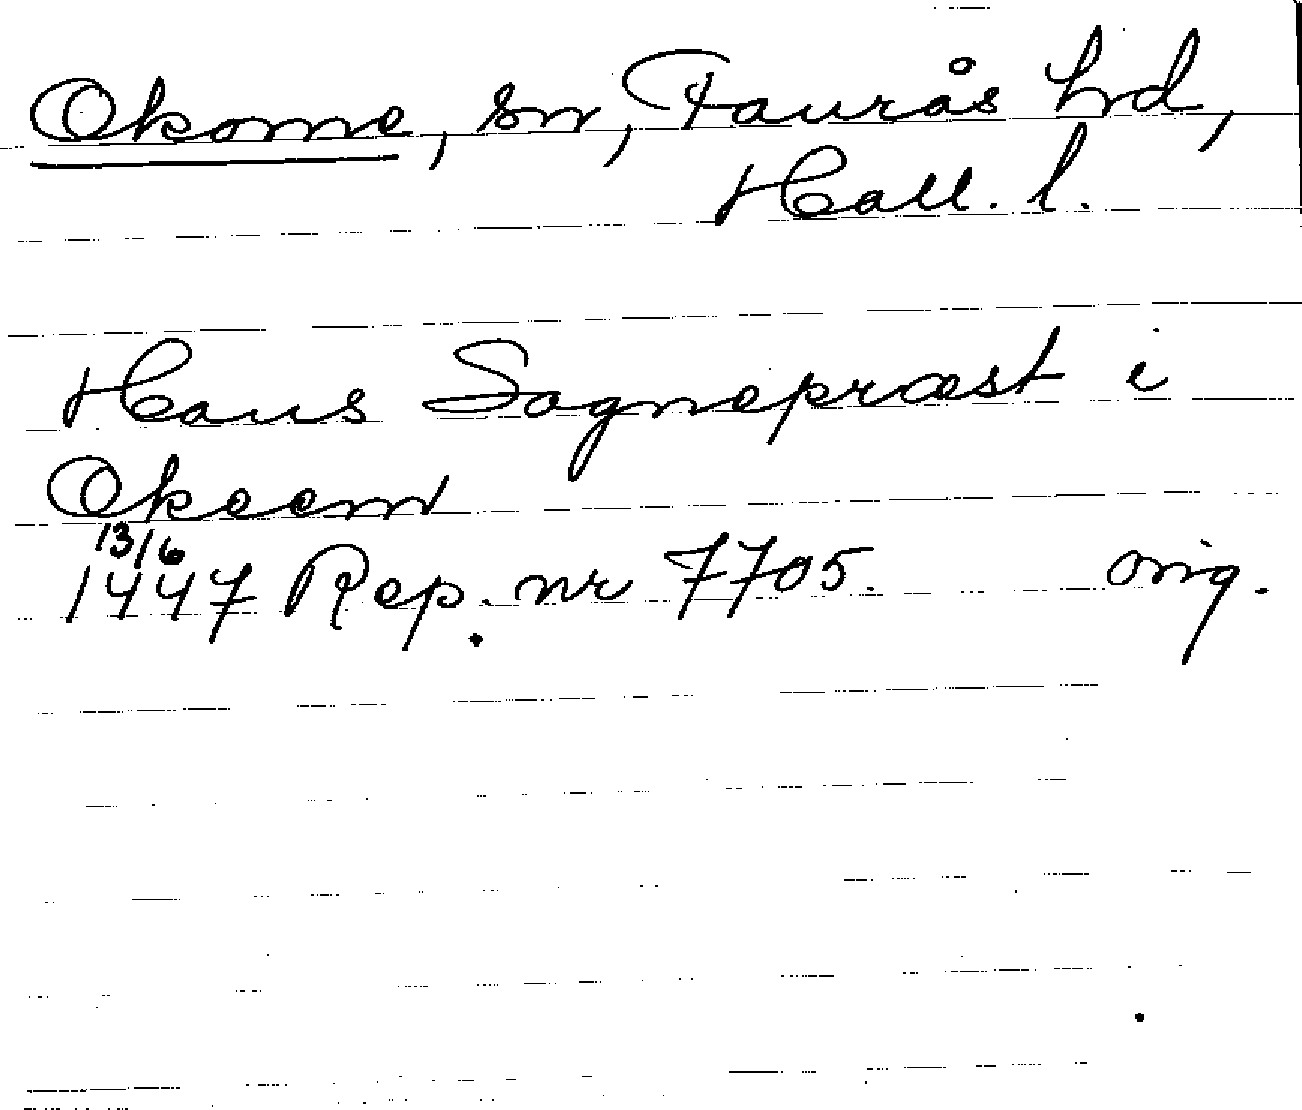 Okome, sn, Faurås hrd,
Hall. l.
Hans Sognepræst i
Okeem
13/6
1447 Rep. nr 7705. orig.